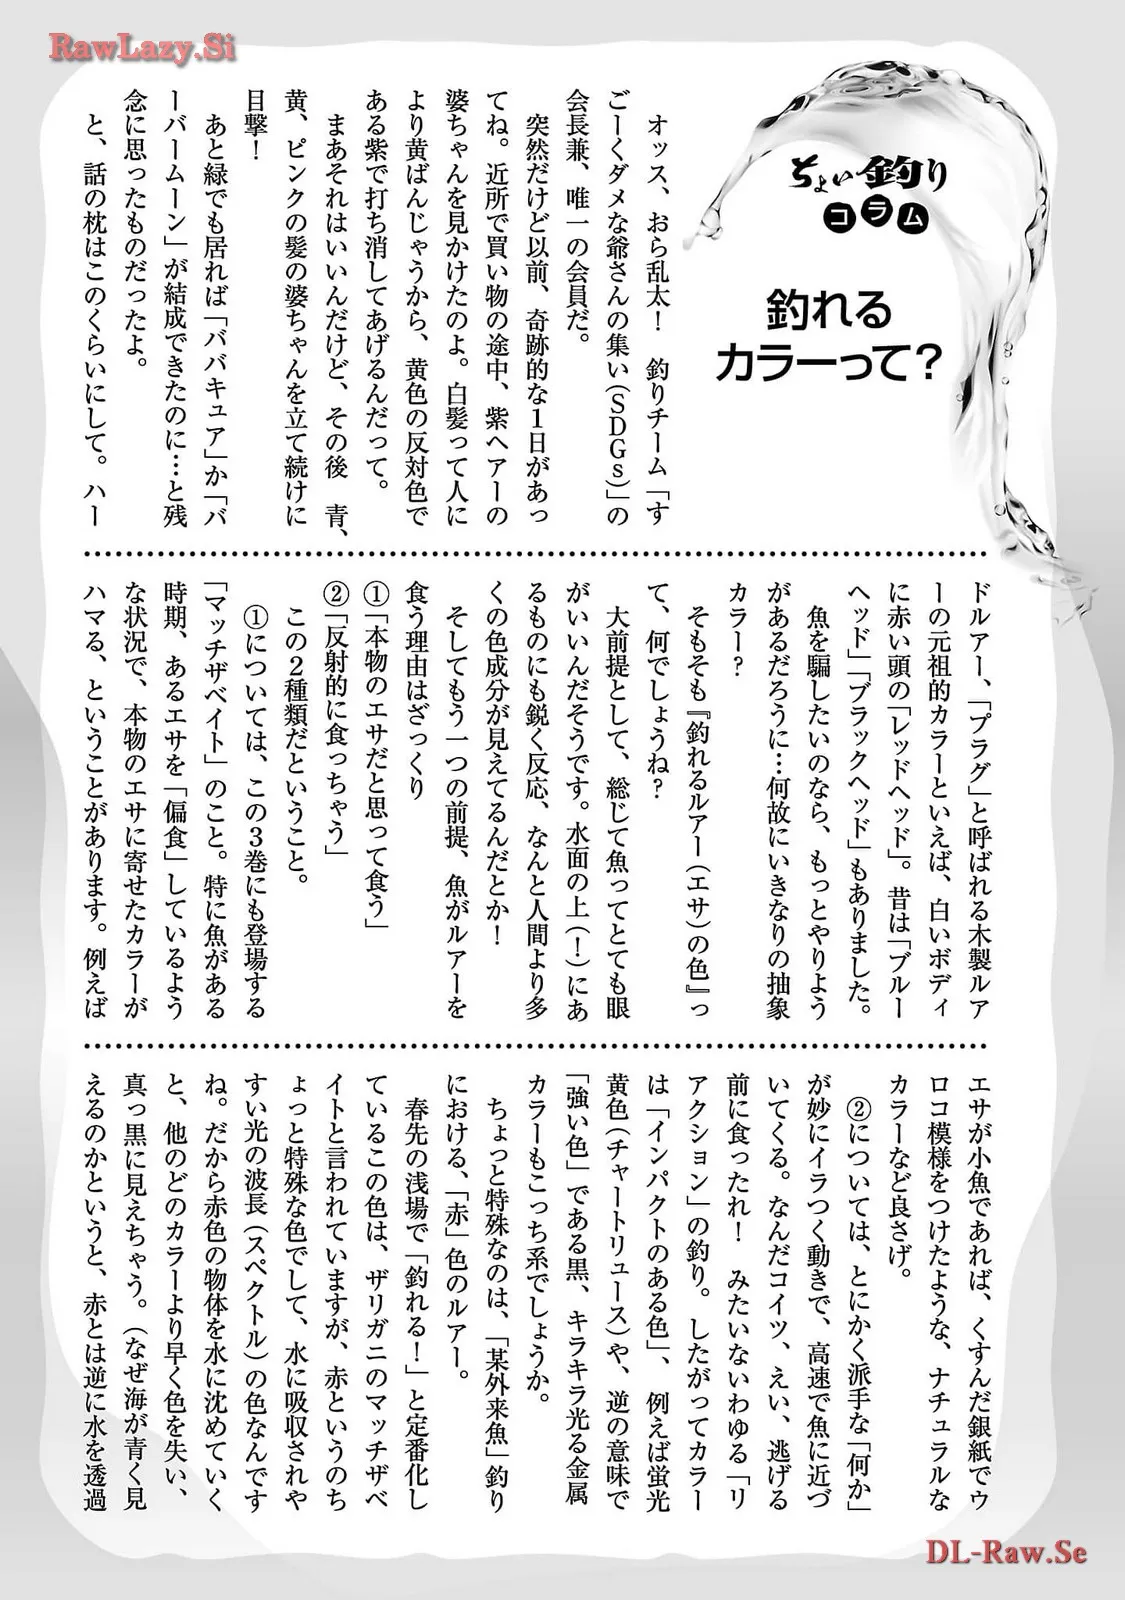 RawLazy.Si
ちょい釣り
コラム
釣れる
カラーって？
オッス、おら乱太！　釣りチーム「す
ごーくダメな爺さんの集い（SDGs）」の
会長兼、唯一の会員だ。
突然だけど以前、奇跡的な1日があっ
てね。近所で買い物の途中、紫ヘアーの
婆ちゃんを見かけたのよ。白髪って人に
より黄ばんじゃうから、黄色の反対色で
ある紫で打ち消してあげるんだって。
まあそれはいいんだけど、その後　青、
黄、ピンクの髪の婆ちゃんを立て続けに
目撃！
あと緑でも居れば「ババキュア」か「バ
ーバームーン」が結成できたのに…と残
念に思ったものだったよ。
と、話の枕はこのくらいにして。ハー
ドルアー、「プラグ」と呼ばれる木製ルア
ーの元祖的カラーといえば、白いボディ
に赤い頭の「レッドヘッド」。昔は「ブルー
ヘッド」「ブラックヘッド」もありました。
魚を騙したいのなら、もっとやりよう
があるだろうに…何故にいきなりの抽象
カラー？
そもそも『釣れるルアー（エサ）の色』っ
て、何でしょうね？
大前提として、総じて魚ってとても眼
がいいんだそうです。水面の上（！）にあ
るものにも鋭く反応、なんと人間より多
くの色成分が見えてるんだとか！
そしてもう一つの前提、魚がルアーを
食う理由はざっくり
①「本物のエサだと思って食う」
②「反射的に食っちゃう」
この2種類だということ。
①については、この3巻にも登場する
「マッチザベイト」のこと。特に魚がある
時期、あるエサを「偏食」しているよう
な状況で、本物のエサに寄せたカラーが
ハマる、ということがあります。例えば
エサが小魚であれば、くすんだ銀紙でウ
ロコ模様をつけたような、ナチュラルな
カラーなど良さげ。
②については、とにかく派手な「何か」
が妙にイラつく動きで、高速で魚に近づ
いてくる。なんだコイツ、えい、逃げる
前に食ったれ！　みたいないわゆる「リ
アクション」の釣り。したがってカラー
は「インパクトのある色」、例えば蛍光
黄色（チャートリュース）や、逆の意味で
「強い色」である黒、キラキラ光る金属
カラーもこっち系でしょうか。
ちょっと特殊なのは、「某外来魚」釣り
における、「赤」色のルアー。
春先の浅場で「釣れる！」と定番化し
ているこの色は、ザリガニのマッチザベ
イトと言われていますが、赤というのち
ょっと特殊な色でして、水に吸収されや
すい光の波長（スペクトル）の色なんです
ね。だから赤色の物体を水に沈めていく
と、他のどのカラーより早く色を失い、
真っ黒に見えちゃう。（なぜ海が青く見
えるのかというと、赤とは逆に水を透過
DL-Raw.Se